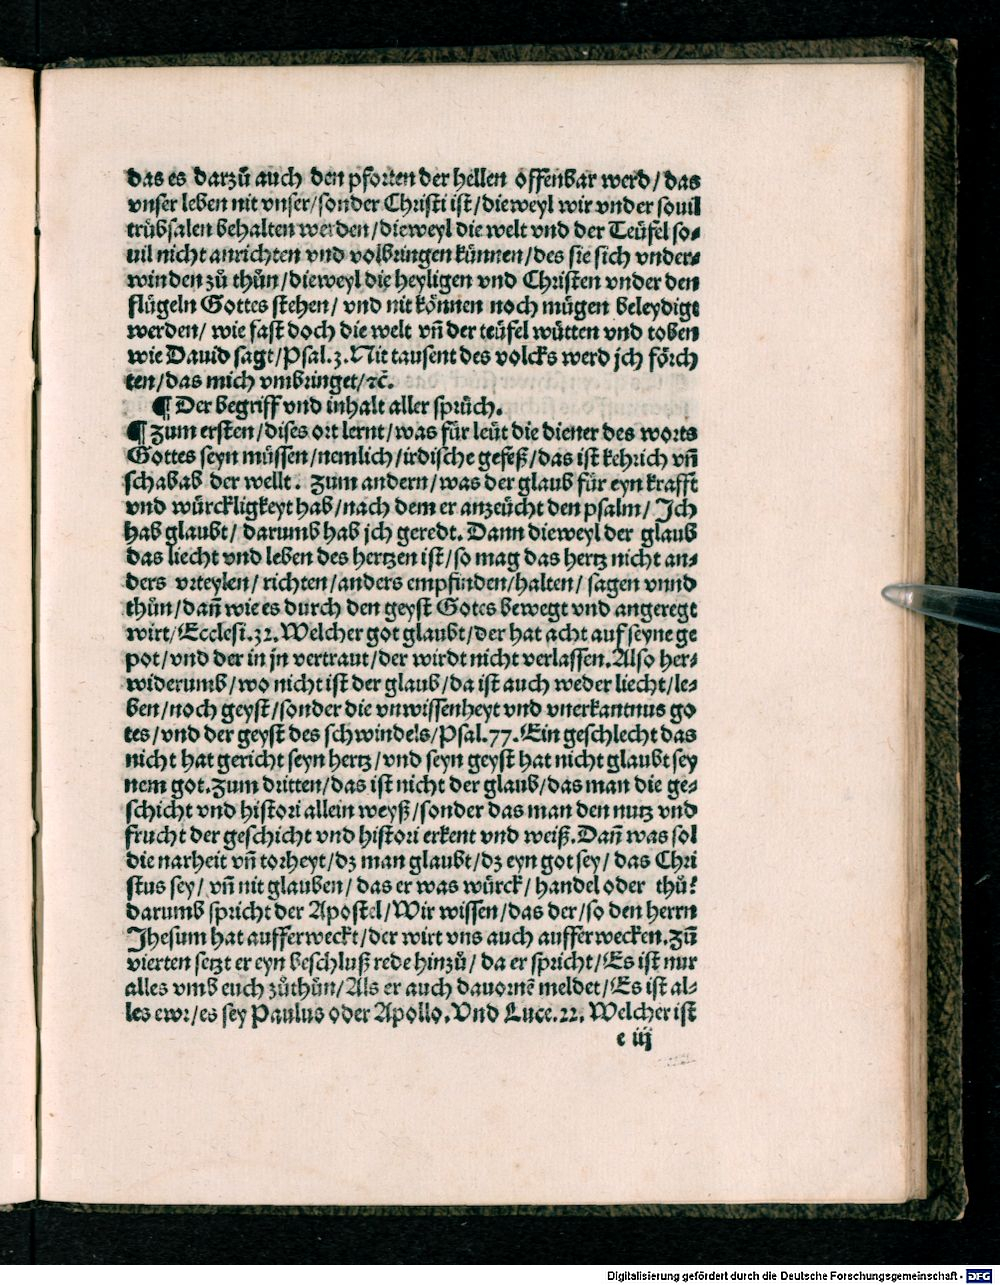 das es darzů auch den pforten der hellen offenbar werd/ das
vnser leben nit vnser/sonder Christi ist/dieweyl wir vnder souil
trübsalen behalten werden/dieweyl die welt vnd der Teüfel so⸗
uil nicht anrichten vnd volbringen künnen/des sie sich vnder⸗
winden zů thůn/dieweyl die heyligen vnd Christen vnder den
flügeln Gottes stehen/ vnd nit können noch mügen beleydigt
werden/ wie fast doch die welt vñ der teüfel wütten vnd toben
wie Dauid sagt/Psal.3.Nit tausent des volcks werd jch förch
ten/das mich vmbringet/ꝛc̃.
¶ Der begriff vnd inhalt aller sprüch.
¶ Zum ersten/dises ort lernt/was für leüt die diener des worts
Gottes seyn müssen/nemlich/irdische gefeß/das ist kehrich vñ
schabab der wellt. Zum andern/was der glaub für eyn krafft
vnd würckligkeyt hab/nach dem er anzeücht den psalm/ Jch
hab glaubt/ darumb hab jch geredt. Dann dieweyl der glaub
das liecht vnd leben des hertzen ist/so mag das hertz nicht an⸗
ders vrteylen/ richten/anders empfinden/halten/ sagen vnnd
thůn/dañ wie es durch den geyst Gotes bewegt vnd angeregt
wirt/Ecclesi.32.Welcher got glaubt/der hat acht auf seyne ge
pot/vnd der in jn vertraut/der wirdt nicht verlassen.Also her⸗
widerumb/wo nicht ist der glaub/da ist auch weder liecht/le⸗
ben/noch geyst/sonder die vnwissenheyt vnd vnerkantnus go
tes/vnd der geyst des schwindels/Psal.77.Ein geschlecht das
nicht hat gericht seyn hertz/vnd seyn geyst hat nicht glaubt sey
nem got.Zum dritten/das ist nicht der glaub/das man die ge⸗
schicht vnd histori allein weyß/sonder das man den nutz vnd
frucht der geschicht vnd histori erkent vnd weiß.Dañ was sol
die narheit vñ torheyt/dz man glaubt/dz eyn got sey/ das Chri
stus sey/ vñ nit glauben/ das er was würck/ handel oder thů?
darumb spricht der Apostel/Wir wissen/das der/so den herrn
Jhesum hat aufferweckt/der wirt vns auch aufferwecken.Zů
vierten setzt er eyn beschluß rede hinzů/ da er spricht/Es ist nur
alles vmb euch zůthůn/Als er auch dauornẽ meldet/Es ist al⸗
les ewr/es sey Paulus oder Apollo.Vnd Luce.22. Welcher ist
e iij
Digitalisierung gefördert durch die Deutsche Forschungsgemeinschaft - DFG